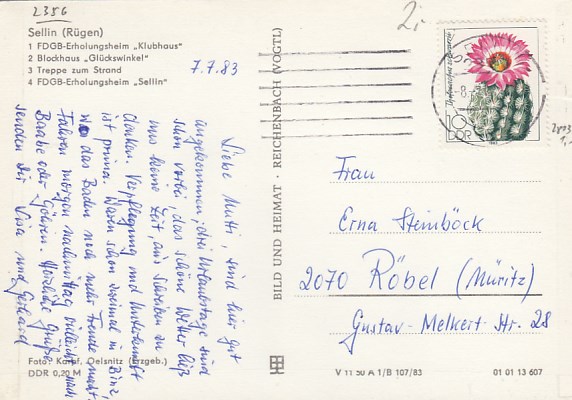 2356
Sellin (Rügen)
1 FDGB-Erholungsheim „Klubhaus"
2 Blockhaus „Glückswinkel"
3 Treppe zum Strand
4 FDGB-Erholungsheim „Sellin"
7.7.83
Liebe Mutti, sind hier gut
angekommen, drei Urlaubstage sind
schon vorbei, das schöne Wetter ließ
uns keine Zeit, ans Schreiben zu
denken. Verpflegung und Unterkunft
ist prima. Waren schon zweimal in Binz,
wo das Baden noch mehr Freude macht.
Fahren morgen nachmittag vielleicht nach
Baabe oder Göhren. Herzliche Grüße
senden Dir Lisa und Gerhard
Foto: Kampf, Oelsnitz (Erzgeb.)
DDR 0,20 M
BILD UND HEIMAT · REICHENBACH (VOGTL)
2,-
10
DDR
Frau
Erna Steinböck
2070 Röbel (Müritz)
Gustav-Melkert-Str. 28
V 11 50 A 1/B 107/83
01 01 13 607